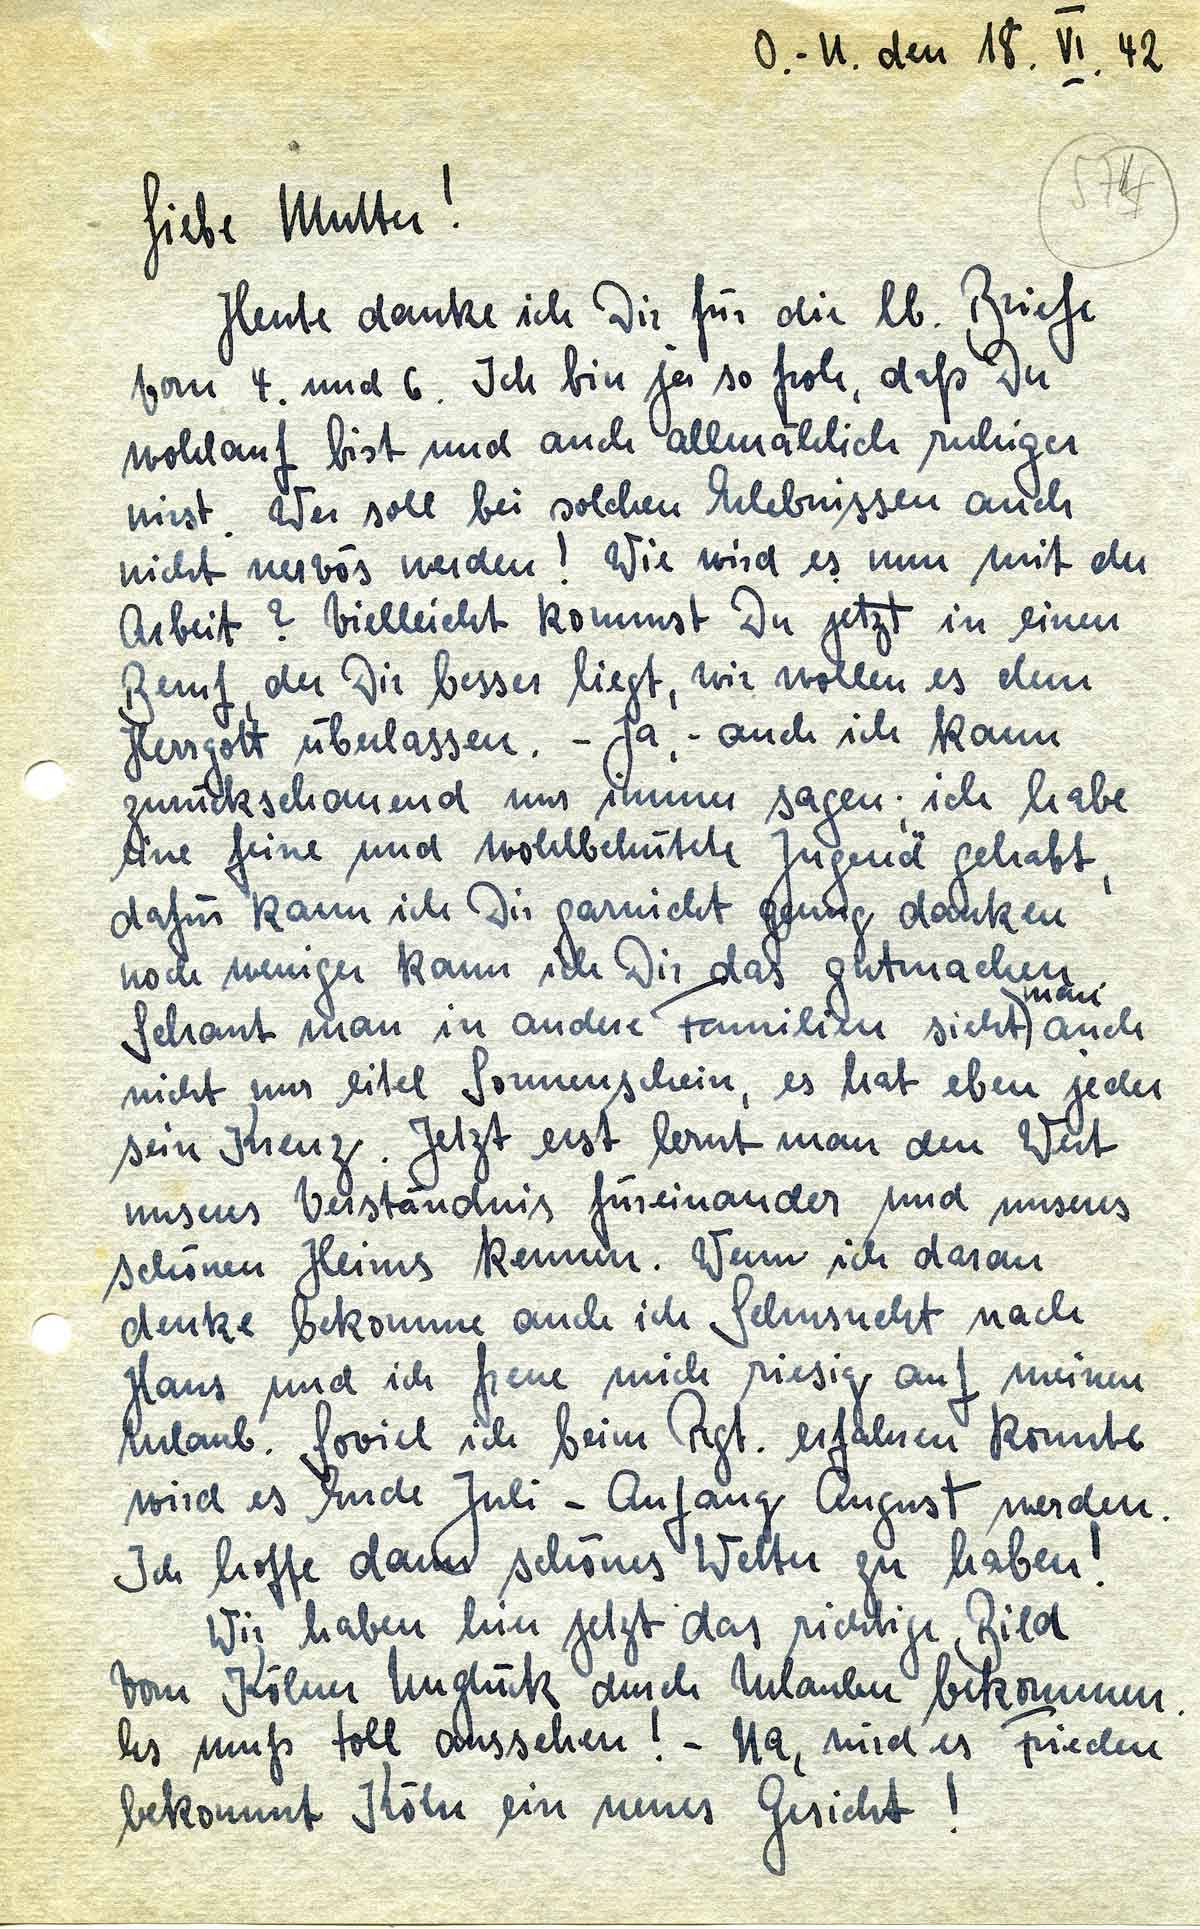 O.-U. den 18. VI. 42
574
Liebe Mutter!
Heute danke ich Dir für die lb. Briefe
vom 4. und 6. Ich bin ja so froh, daß Du
wohlauf bist und auch allmählich ruhiger
wirst. Wer soll bei solchen Erlebnissen auch
nicht nervös werden! Wie wird es nun mit der
Arbeit? Vielleicht kommst Du jetzt in einen
Beruf, der Dir besser liegt, wir wollen es dem
Herrgott überlassen. - Ja, - auch ich kann
zurückschauend nur immer sagen; ich habe
eine feine und wohlbehütete Jugend gehabt,
dafür kann ich Dir garnicht genug danken
noch weniger kann ich Dir das gutmachen
Schaut man in andere Familien sieht) man auch
nicht nur eitel Sonnenschein, es hat eben jeder
sein Kreuz. Jetzt erst lernt man den Wert
unseres Verständnis füreinander und unseres
schönen Heims kennen. Wenn ich daran
denke bekomme auch ich Sehnsucht nach
Haus und ich freue mich riesig auf meinen
Urlaub. Soviel ich beim Rgt. erfahren konnte
wird es Ende Juli - Anfang August werden.
Ich hoffe dann schönes Wetter zu haben!
Wir haben hier jetzt das richtige Bild
vom Kölner Unglück durch Urlauber bekommen.
Es muß toll aussehen! - Na, wird es Frieden
bekommt Köln ein neues Gesicht!